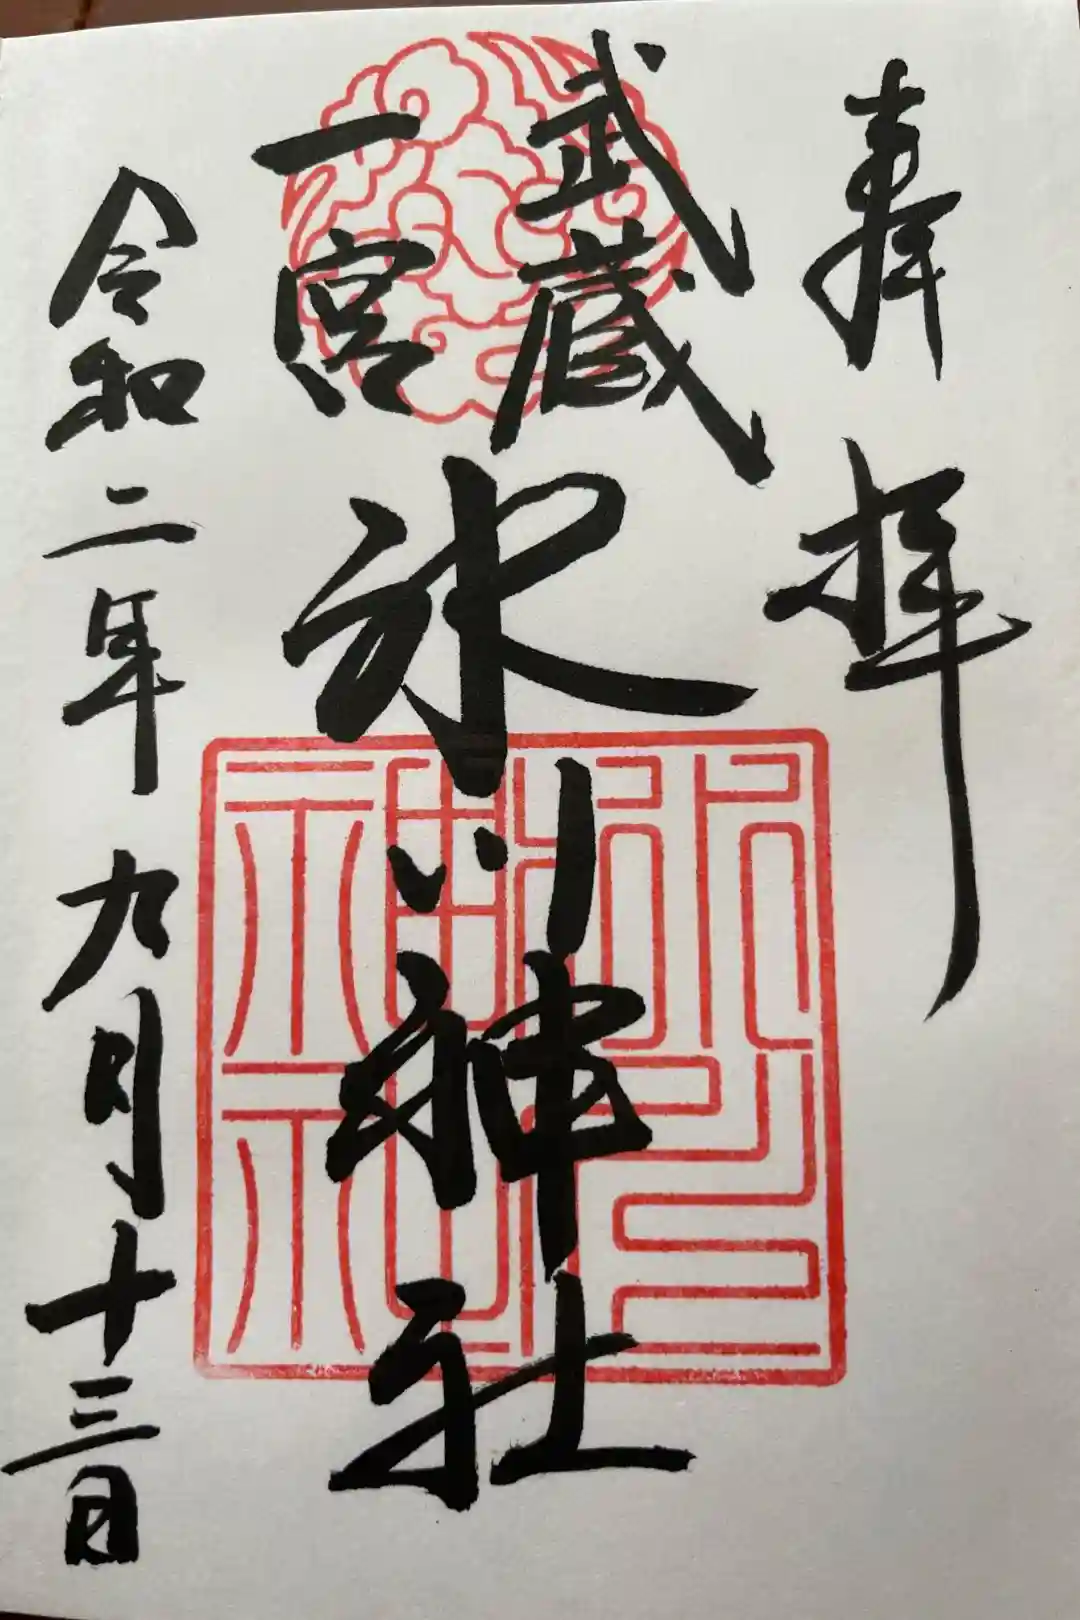 奉拝
武蔵
一宮
氷川神社
令和二年九月十三日